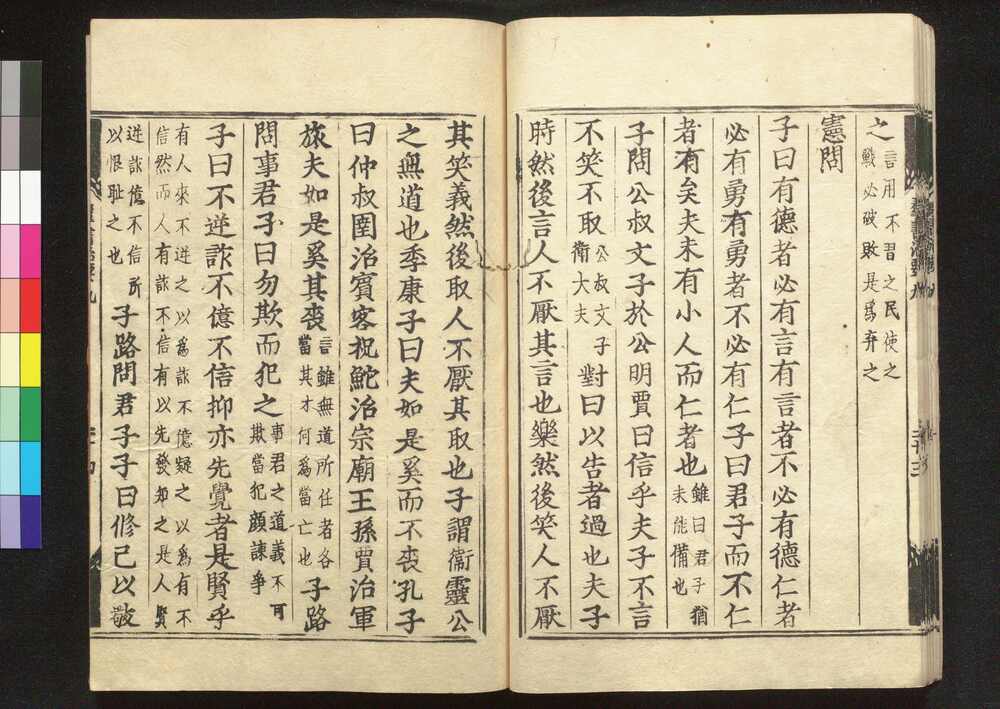 之 言用不習之民使之
戰必破敗是爲弃之
憲問
子曰有德者必有言有言者不必有德仁者
必有勇有勇者不必有仁子曰君子而不仁
者有矣夫未有小人而仁者也 雖曰君子猶
未能備也
子問公叔文子於公明賈曰信乎夫子不言
不笑不取 公叔文子
衛大夫 對曰以告者過也夫子
時然後言人不厭其言也樂然後笑人不厭
其笑義然後取人不厭其取也子謂衞靈公
之無道也季康子曰夫如是奚而不喪孔子
曰仲叔圉治賓客祝鮀治宗廟王孫賈治軍
旅夫如是奚其喪 言雖無道所任者各
當其才何爲當亡也 子路
問事君子曰勿欺而犯之 事君之道義不可
欺當犯顔諫爭
子曰不逆詐不億不信抑亦先覺者是賢乎
有人來不逆之以爲詐不億疑之以爲有不
信然而人有詐不信有以先發知之是人賢
逆詐億不信所
以恨耻之也 子路問君子子曰脩己以敬